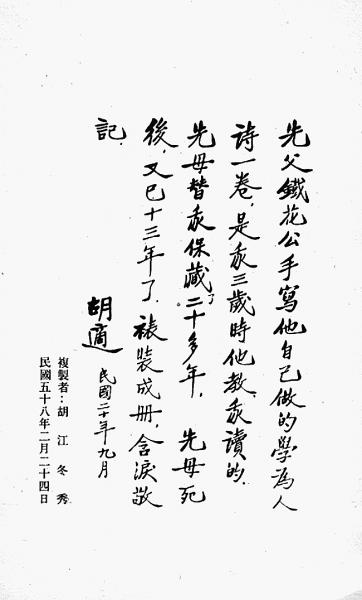 先父鐵花公手寫他自己做的學為人
詩一卷，是我三歲時他教我讀的。
先母替我保藏了二十多年，先母死
後，又已十三年了，裱裝成册，含淚敬
記。
胡適 民國二十年九月
複製者：胡江冬秀
民國五十八年二月二十四日